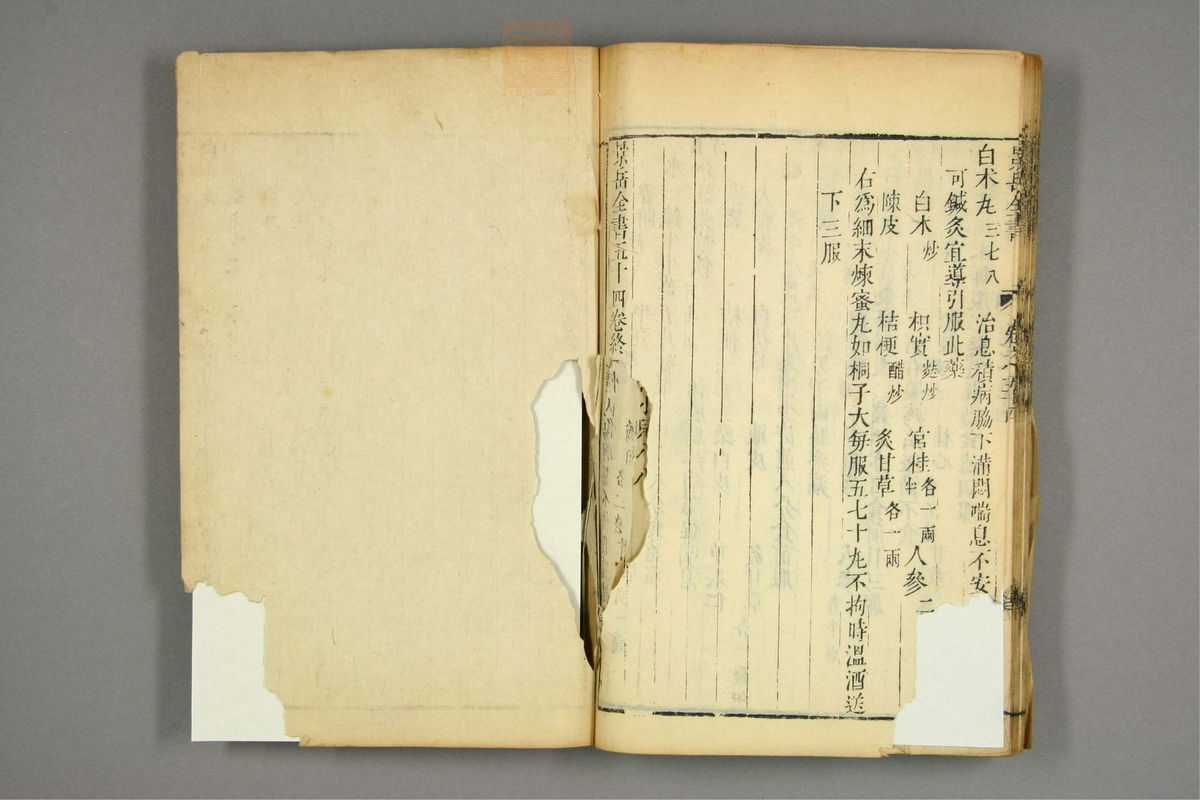 景岳全書
卷之五十四
白术丸三七八 治息積病脇下滿悶喘息不安
可鍼灸宜導引服此藥
白术炒 枳實麩炒 官桂各一兩半 人參二
陳皮 桔梗醋炒 炙甘草各一兩
右爲細末煉蜜丸如桐子大每服五七十丸不拘時溫酒送
下三服
景岳全書五十四卷終